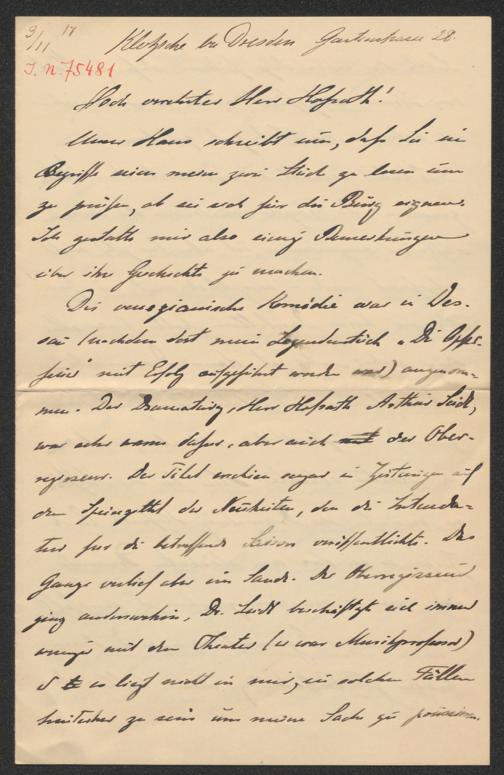 9/11 17
Klotzsche bei Dresden Gartenstrasse 28.
I.N. 75481
Hoch verehrter Herr Hofrath!
Unser Haus schreibt mir, daß Sie im
Begriffe seien meine zwei Stücke zu lesen um
zu prüfen, ob sie sich für die Burg eignen.
Ich gestatte mir also einige Bemerkungen
über ihre Geschichte zu machen.
Die venezianische Komödie war in Des-
sau (nachdem dort mein Legendenstück „Die Opfer-
feier" mit Erfolg aufgeführt worden war) angenom-
men. Der Dramaturg, Herr Hofrath Arthur Seidl,
war sehr warm dafür, aber auch der Ober-
regisseur. Der Titel erschien sogar in Zeitungen auf
dem Speisezettel der Neuheiten, den die Intendan-
tur für die betreffende Saison veröffentlichte. Das
Ganze verlief aber im Sande. Der Oberregisseur
ging anderswohin, Dr. Seidl beschäftigte sich immer
weniger mit dem Theater (er war Musikprofessor)
u es liegt nicht in mir, in solchen Fällen
zu sein um meine Sache zu